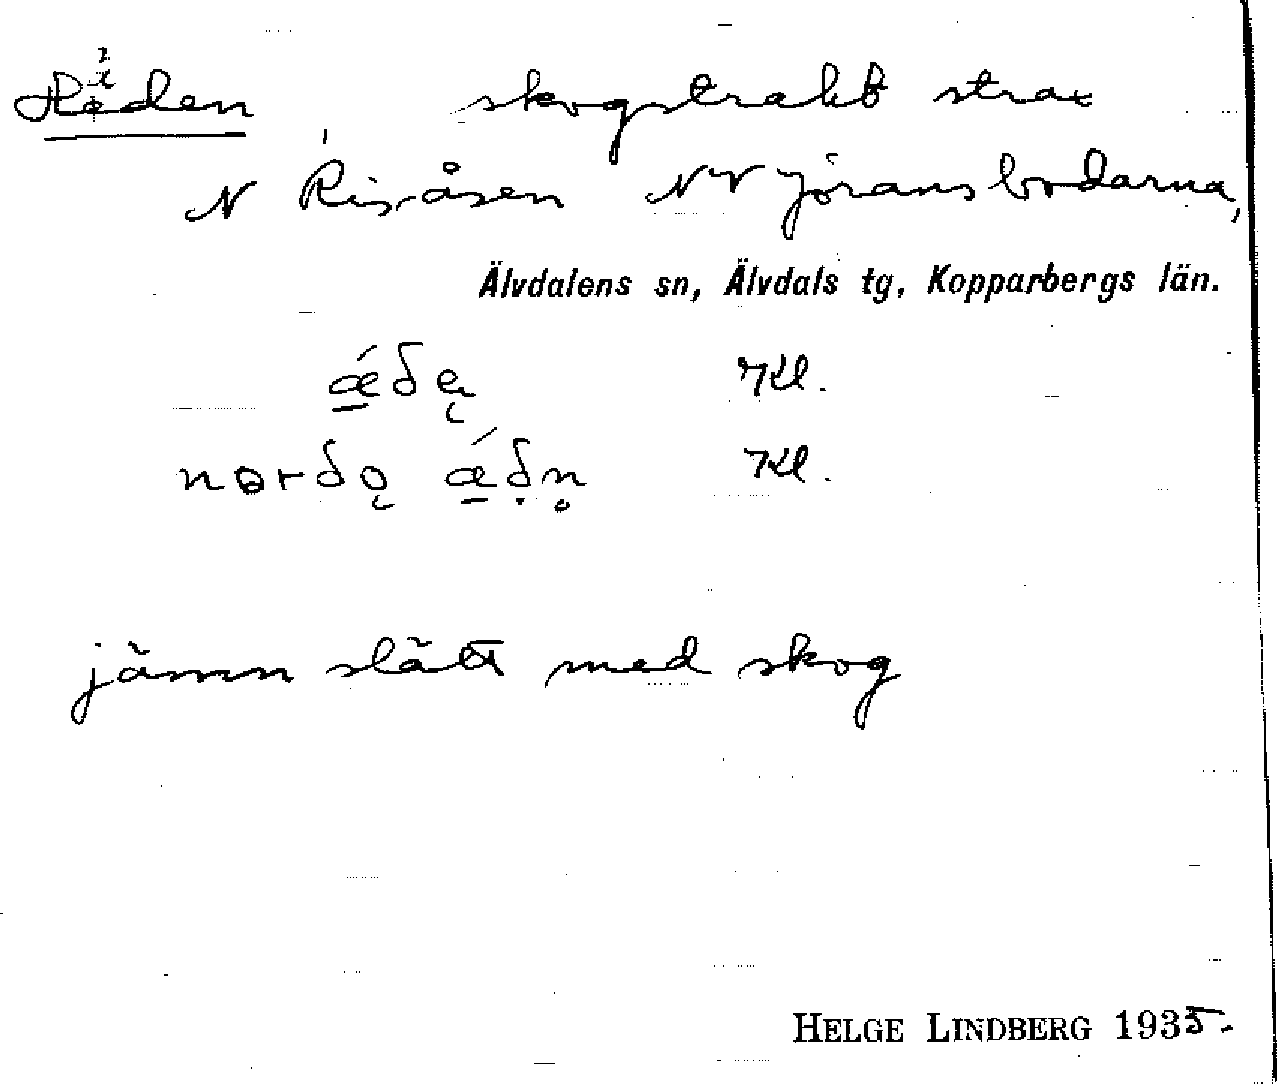 Heden skogstrakt strax
N Risåsen NV Jöransbodarna,
Älvdalens sn, Älvdals tg, Kopparbergs län.
ǽðę 7Kl.
nɵrðǫ ǽð̣n̥ 7Kl.
jämn slätt med skog
HELGE LINDBERG 1935.